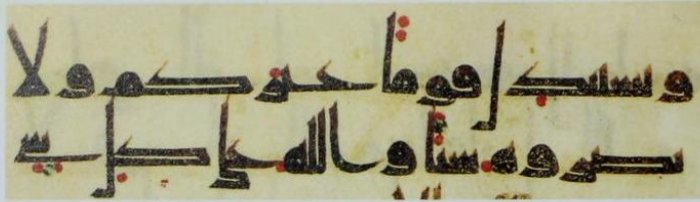 ويستبدل قوما غيركم ولا
تضروه شيا والله على كل شى